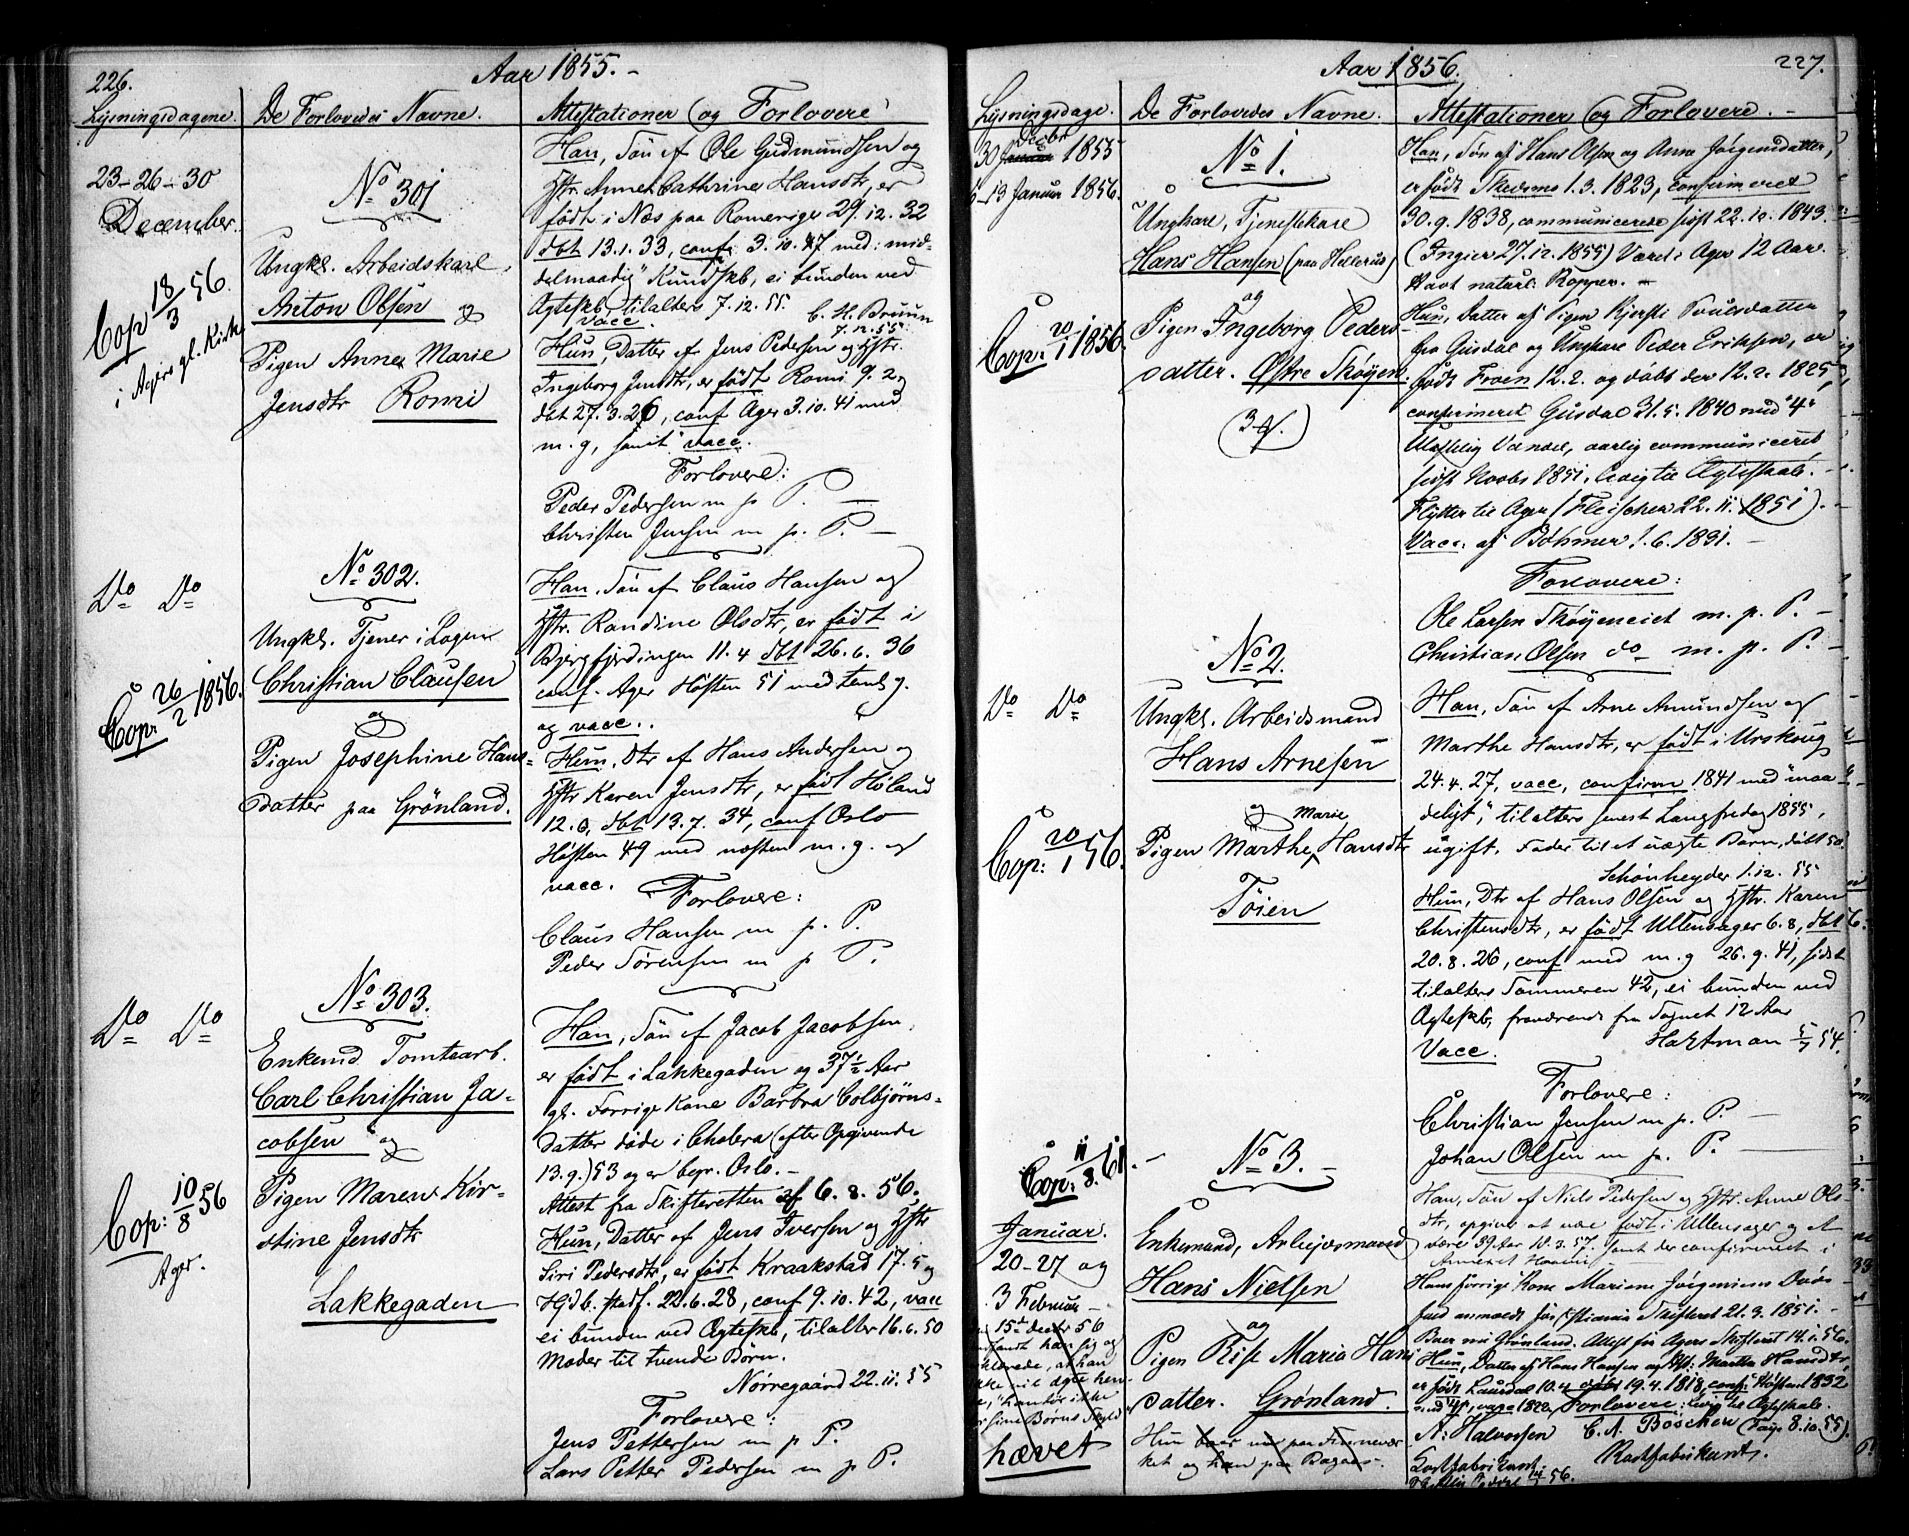 226.
Aar 1855.
Lysningsdagene.
De Forlovedes Navne.
Attestationer og Forlovere
23-26-30
December.
No 301
Ungkl. Arbeidskarl
Anton Olsen
og
Pigen Anne Marie
Jensdtr Romi
Cop 18/3 56.
i Agers gl. Kirke
Han, Søn af Ole Gudmundsen og
Hstr. Anne Cathrine Hansdtr, er
født i Næs paa Romerige 29.12.32
dbt 13.1.33, conf. 3.10.47 med: mid-
delmaadig" Kundskb, ei bunden ved
Ægteskb, tilalters 7.12.55. C. H. Bruun
vacc. 7.12.55.
Hun, Datter af Jens Pedersen og Hstr.
Ingeborg Jensdtr, er født Romi 9.2,
dbt 27.3.26, conf Ager 3.10.41 med
m.g, samt vacc.
Forlovere:
Peder Pedersen m p. P. —
Christen Jensen m. p. P. —
Do Do
No 302.
Ungkl. Tjener i Logen
Christian Clausen
og
Pigen Josephine Hans-
datter paa Grønland.
Cop: 26/2 1856.
Han, Søn af Claus Hansen og
Hstr. Randine Olsdtr, er født i
Bjergfjerdingen 11.4 dbt 26.6.36
conf. Ager Høsten 51 med temlg.
og vacc.
Hun, Dtr af Hans Andersen og
Hstr Karen Jensdtr, er født Høland
12.6, dbt 13.7.34, conf Oslo
Høsten 49 med næsten m.g. og
vacc.
Forlovere:
Claus Hansen m p. P.
Peder Sørensen m p P.
Do Do
No 303.
Enkemd Tomtearb.
Carl Christian Ja-
cobsen og
Pigen Maren Kir-
stine Jensdtr
Lakkegaden
Cop: 10/8 56
Ager.
Han, Søn af Jacob Jacobsen,
er født i Lakkegaden og 37½ Aar
gl. Forrige Kone Barbra Colbjørns-
datter døde i Cholera (efter Opgivende
13.9.)53 og er begr. Oslo. —
Attest fra Skifteretten af 6.8.56.
Hun, Datter af Jens Iversen og Hstr
Siri Pedersdtr, er født Kraakstad 17.5 og
Hjdb. stadf. 22.6.28, conf 9.10.42, vacc
ei bunden ved Ægteskb, tilalter 16.6.50
Moder til tvende Børn.
Nørregaard 22.11.55
Forlovere:
Jens Pettersen m p P.
Lars Petter Pedersen m p P.
227.
Aar 1856.
Lysningsdage.
De Forlovedes Navne.
Attestationer og Forlovere.
Decbr
30 Januar 1855
6-13 Januar 1856.
No 1.
Ungkare, Tjenestekare
Hans Hansen (paa Hellerud)
og
Pigen Ingeborg Peders-
datter. Østre Skøyen.
Cop: 20/1 1856.
Han, Søn af Hans Olsen og Anne Jørgensdatter,
er født Skedsmo 1.3.1823, confirmeret
30.9.1838, communicerede sidst 22.10.1843.
(Ingier 27.12.1855) Været i Ager 12 Aar.
Havt naturl. Kopper. —
Hun, Datter af Pigen Kjersti Povelsdatter
fra Gusdal og Ungkare Peder Eriksen, er
født Froen 12.2. og døbt der 12.2.1825,
confirmeret Gusdal 31.5.1840 med "4"
Ulastelig Vandel, aarlig communiceret
sidst Novbr 1851. Ledig til Ægteskab.
Flytter til Ager (Fleischer 22.11.1851).
Vacc. af Bøhmer 1.6.1831. —
Forlovere:
Ole Larsen Skøyeneiet m. p. P. —
Christian Olsen do m. p. P. —
Do Do
No 2.
Ungkl. Arbeidsmand
Hans Arnesen
og
Marie
Pigen Marthe Hansdtr
Tøien
Cop: 20/1 56.
Han, Søn af Arne Amundsen og
Marthe Hansdtr, er født i Urskoug
24.4.27, vacc, confirm 1841 med "maa
deligt", tilalters senest Langfredag 1855,
ugift. Fader til et uægte Barn, døbt 50.
Schønheyder 1.12.55
Hun, Dtr af Hans Olsen og Hstr. Karen
Christensdtr, er født Ullensager 6.8, dbt
20.8.26, conf med m.g 26.9.41, sidst
tilalters Sommeren 42, ei bunden ved
Ægteskb, fraværende fra Sognet 12 Aar
Vacc. Haltman 5/7 54.
Forlovere:
Christian Jensen m. p. P. —
Johan Olsen m p. P. —
Cop: 11/8. 61. —
No 3. —
Januar.
20-27 og
3 Februar
Enkemand, Arbejdsmand
Hans Nielsen
og
Pigen Else Maria Hans
datter. Grønland.
15d decbr 56
fandt han sig og
klærede, at han
ikke vil ægte hen-
de,
sine Børns Skyld
hævet
Han, Søn af Niels Pedersen og Hstr. Anne Ols
dtr, opgives at være født i Ullensager og at
være 39 Aar samt der confirmeret i
Hans forrige Kone Mariane Jørgensens Døds-
fald anmeldt Christiania Skifteret 21.3.1851. —
Boer nu Grønland. Attest fra Agers Skifteret 14.1.56.
Hun, Datter af Hans Hansen og Hst: Marthe Hansdtr,
er født Laurdal 10.4 døbt 19.4.1818, conf. Høsten 1832
Forlovere: ledig til Ægteskab.
A: Halvorsen C. A. Boschen (Faye 8.10.55).
Kortfabrikant.